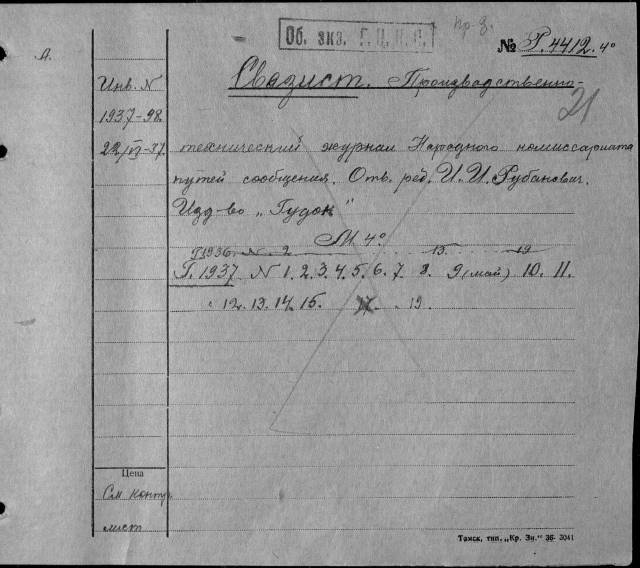 Об. экз. Г.Ц.К.С.
пр-з.
№ Р.4412. 4°
А.
Связист. Производственно-
21
Инв. N
1937-98
22/VI-37.
технический журнал Народного комиссариата
путей сообщения. Отв. ред. И. И. Рубанович.
Изд-во „Гудок"
М. 4°
Г1936 N 2 15 19
Г. 1937 N 1. 2. 3. 4. 5. 6. 7. 8. 9 (май) 10. 11.
12. 13. 14. 15. 17. 19.
Цена
См контр.
лист
Томск, тип. „Кр. Зн." 36- 3041